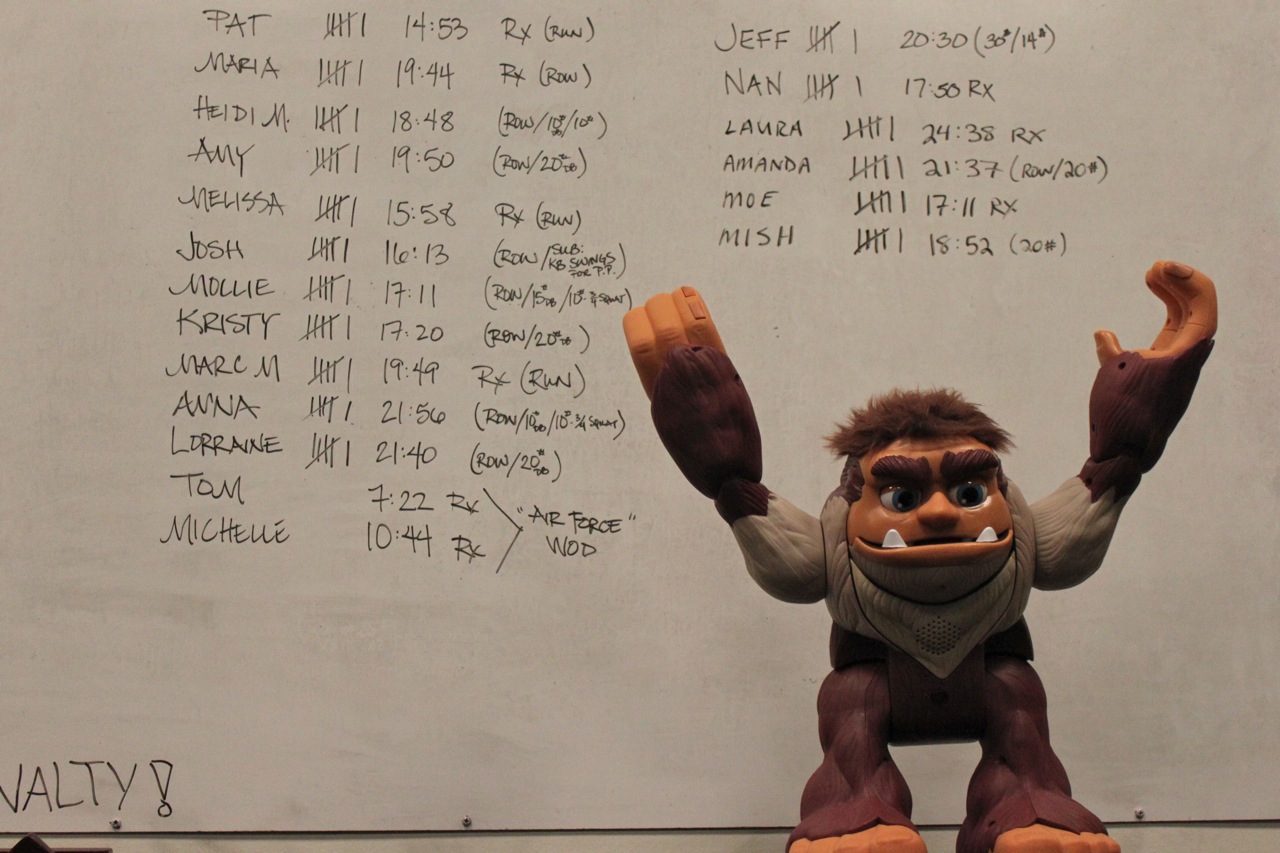 PAT 14:53 Rx (RUN)
MARIA 19:44 Rx (ROW)
HEIDI M. 18:48 (ROW/10#DB/10#)
AMY 19:50 (ROW/20#DB)
MELISSA 15:58 Rx (RUN)
JOSH 16:13 (ROW/SUB: KB SWINGS FOR P.P.)
MOLLIE 17:11 (ROW/15#DB/10#-3/4 SQUAT)
KRISTY 17:20 (ROW/20#DB)
MARC M 19:49 Rx (RUN)
ANNA 21:56 (ROW/10#DB/10#-3/4 SQUAT)
LORRAINE 21:40 (ROW/20#DB)
TOM 7:22 Rx
MICHELLE 10:44 Rx
"AIR FORCE"
WOD
JEFF 20:30 (30#/14#)
NAN 17:50 RX
LAURA 24:38 RX
AMANDA 21:37 (ROW/20#)
MOE 17:11 RX
MISH 18:52 (20#)
NALTY!